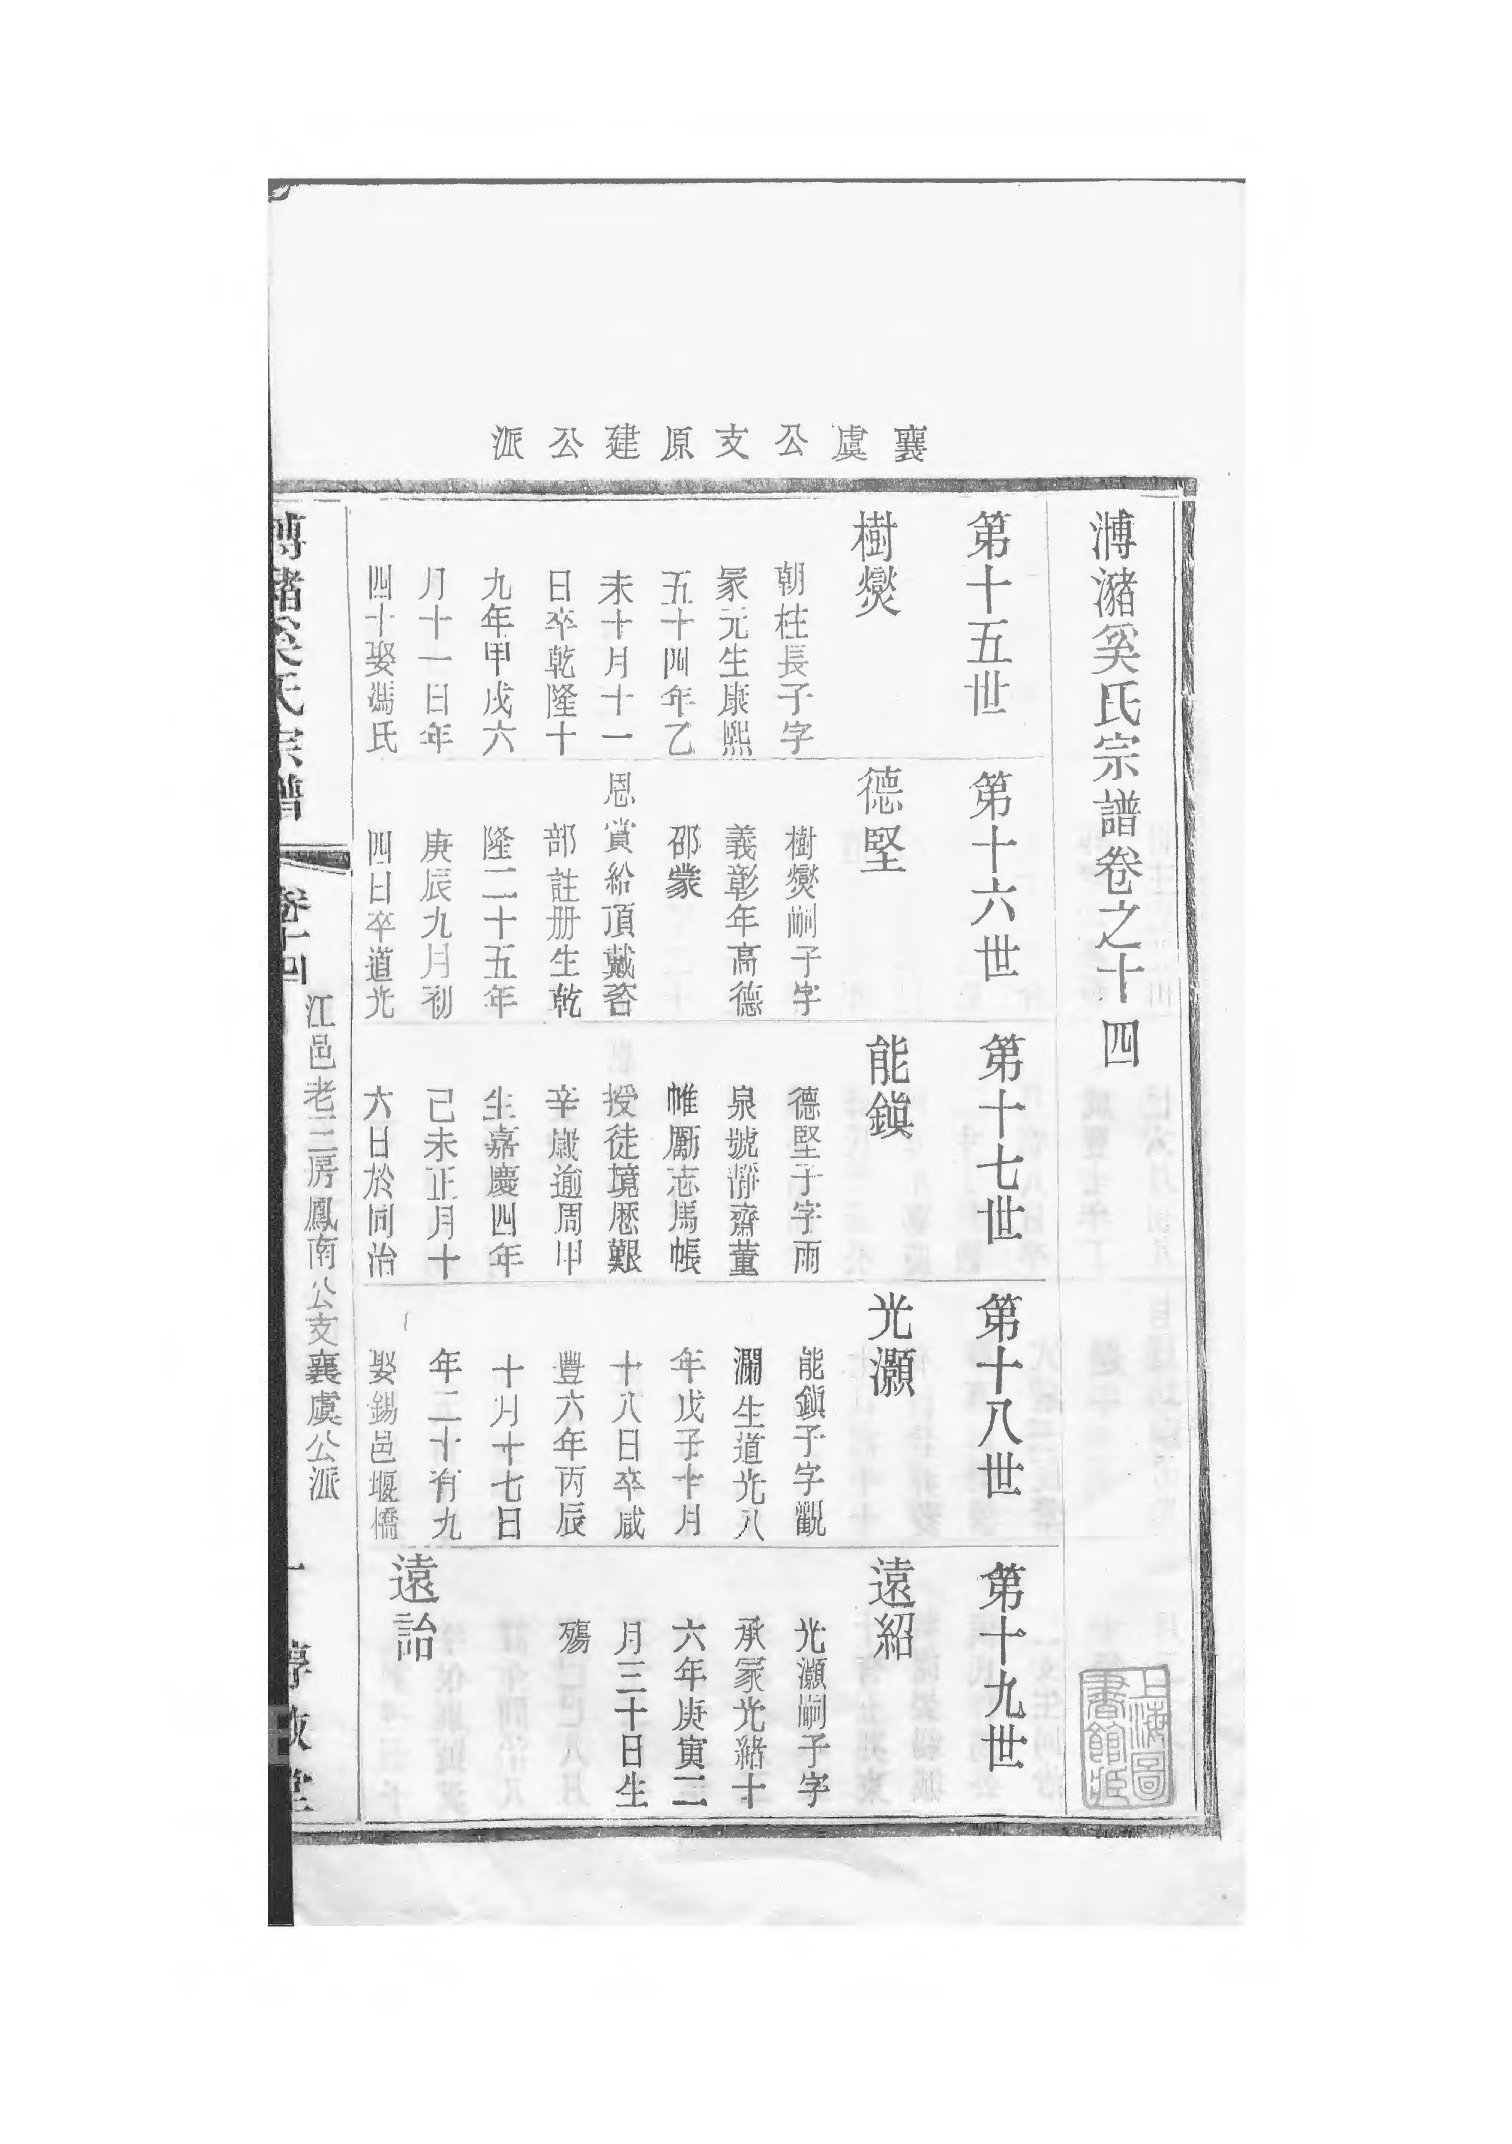 襄虞公支原建公派
溥瀦奚氏宗譜卷之十四
第十五世
樹爕
朝柱長子字
冡元生康熙
五十四年乙
未十月十一
日卒乾隆十
九年甲戌六
月十一日年
四十娶馮氏
第十六世
德堅
樹爕嗣子字
義彰年高德
邵蒙
恩賞給頂戴咨
部註册生乾
隆二十五年
庚辰九月初
四日卒道光
第十七世
能鎭
德堅子字雨
泉號靜齋董
帷勵志馬帳
授徒境歷艱
辛歲逾周甲
生嘉慶四年
己未正月十
六日於同治
第十八世
光灝
能鎭子字觀
瀾生道光八
年戊子十月
十八日卒咸
豐六年丙辰
十月十七日
年二十有九
娶錫邑堰橋
第十九世
遠紹
光灝嗣子字
承冡光緒十
六年庚寅二
月三十日生
殤
遠詒
溥瀦奚氏宗譜
卷十四
江邑老三房鳳南公支襄虞公派
一
敦堂
上海圖書館藏